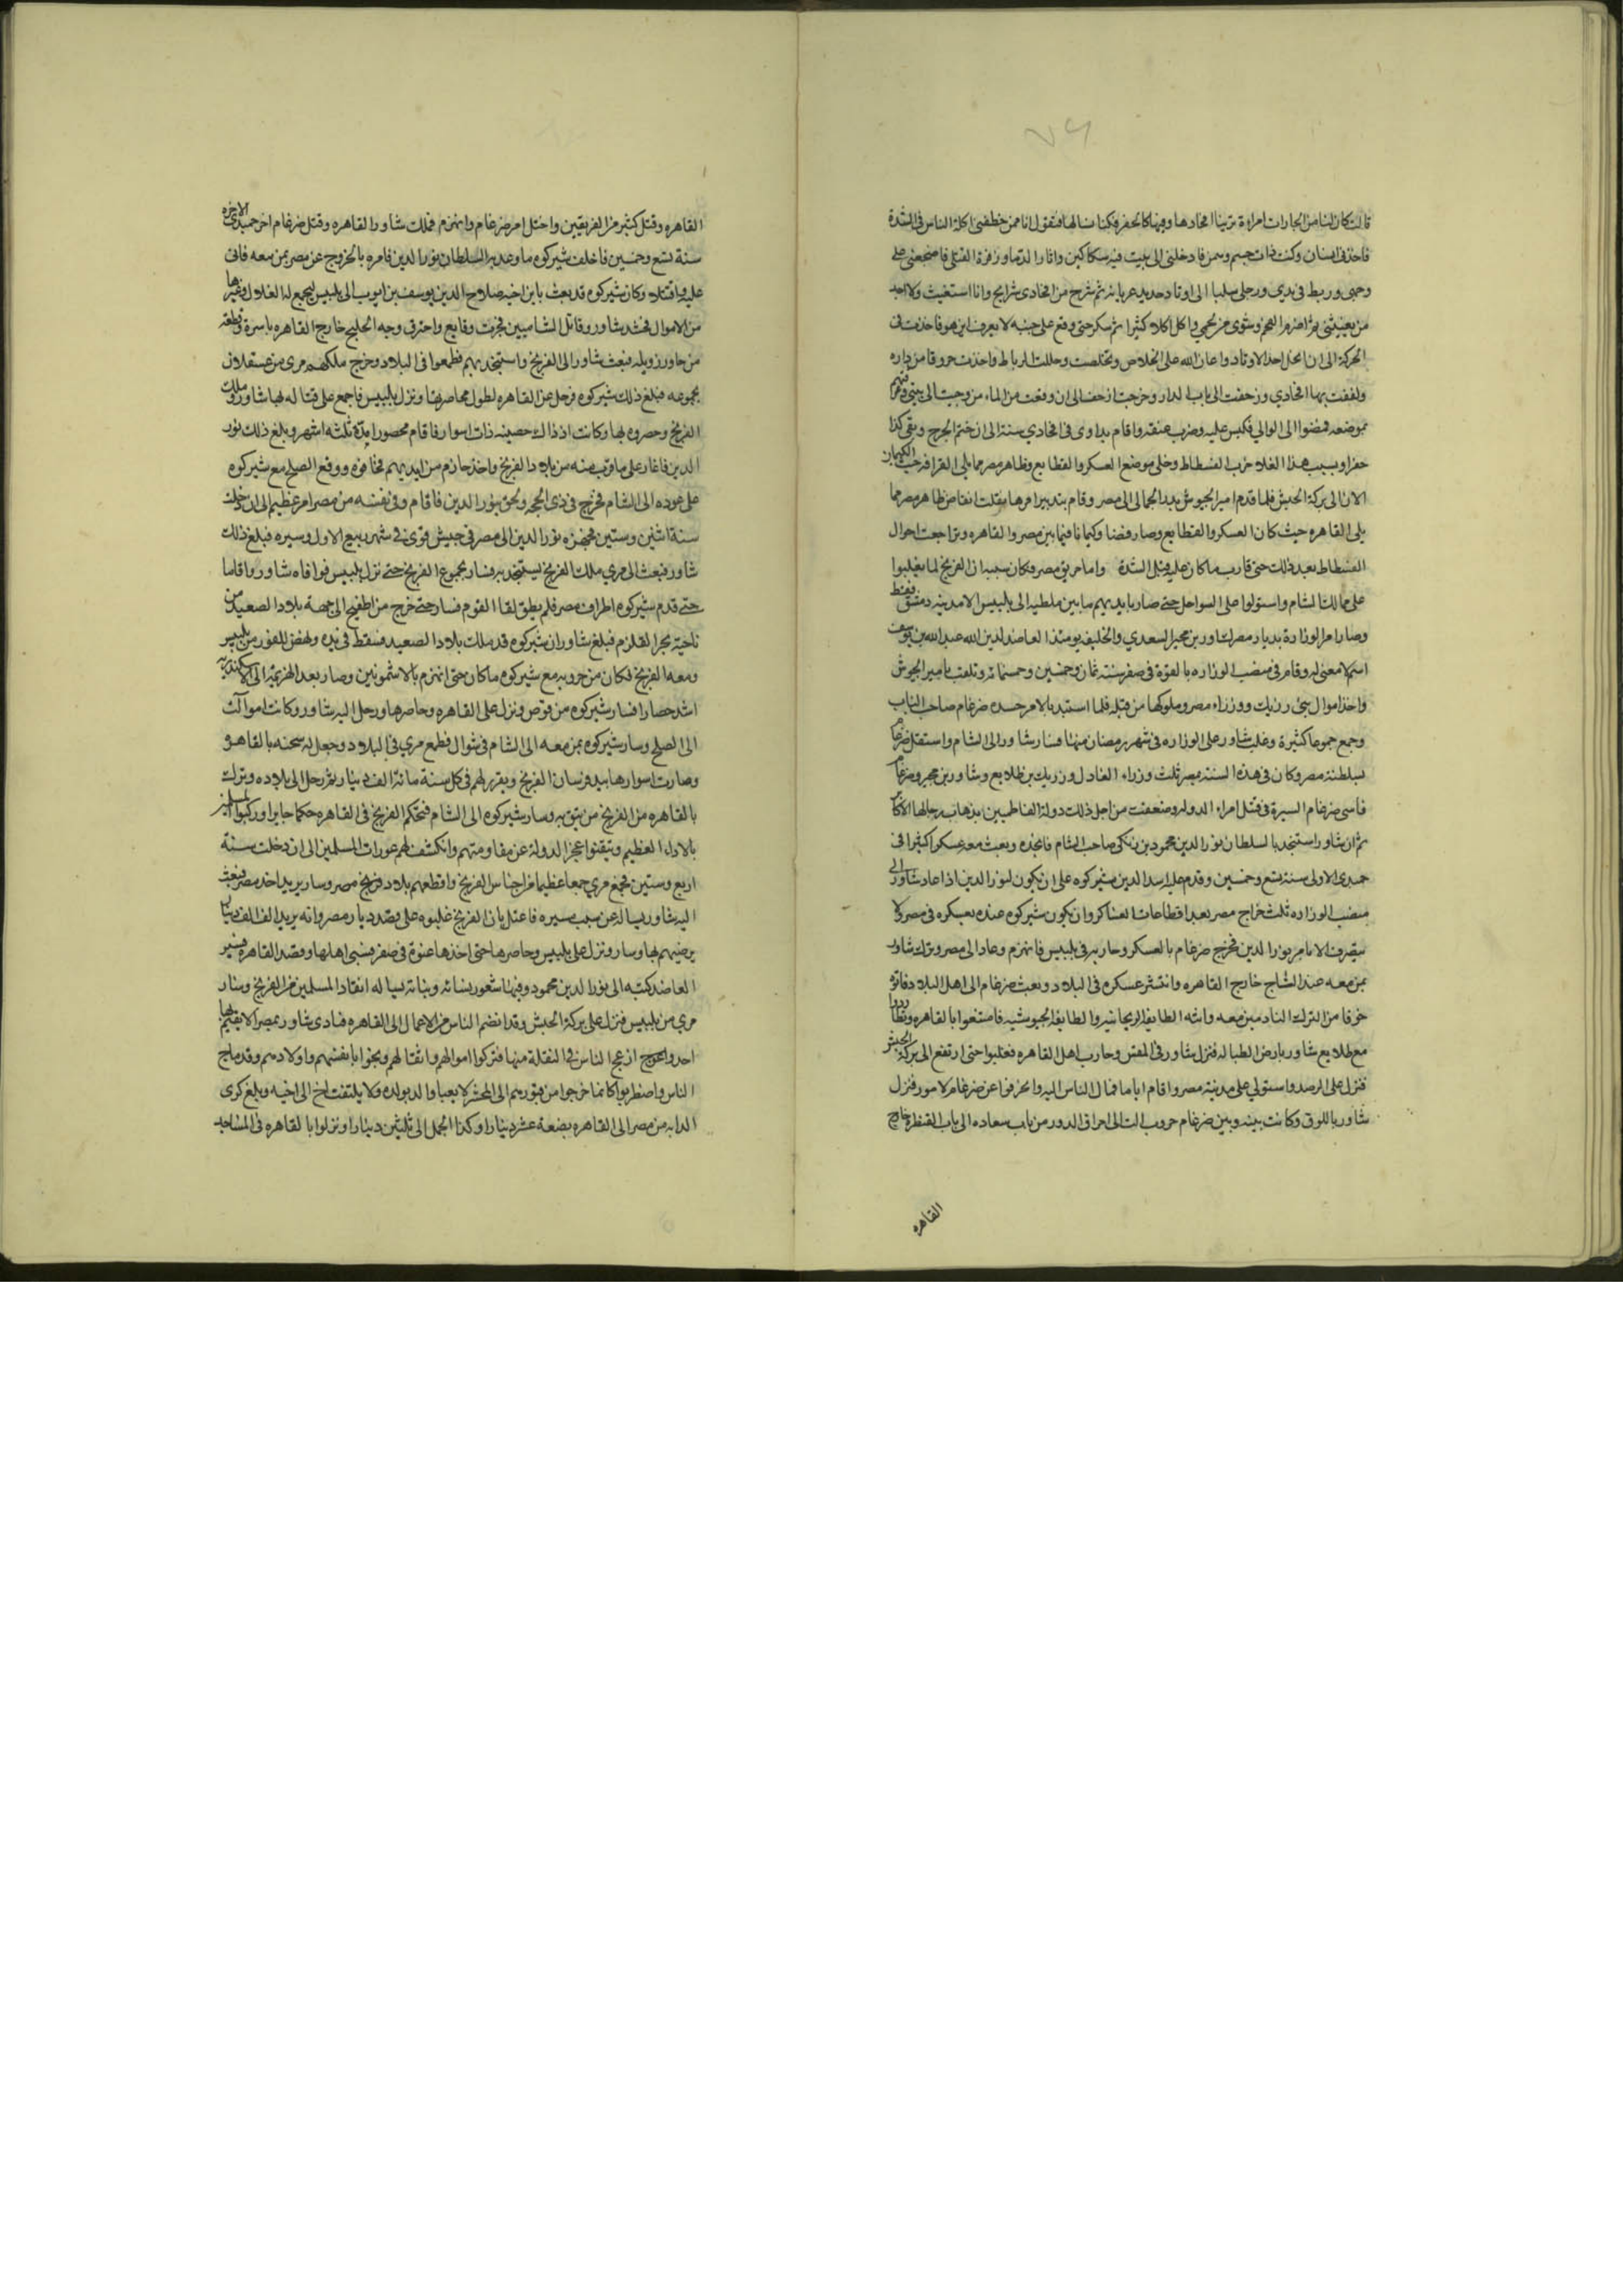 قالت كان لنا من الجارات امراءة ترينا افخادها وفيها كالحفر فكنا نسالها فتقول انا ممن خطفنى اكلة الناس فى الشدة
فاخذنى انسان وكنت ذات جسم وسمن فادخلنى الى بيت فيه سكاكين واثار الدما وزفرة القتلى فاضجعنى على
وجهى وربط فى يدى ورجلى سلبا الى اوتاد حديد عريانه ثم شرح من افخادى شرايح وانا استغيث ولا احد
من يغيثنى ثم اضرم الفحم وشوى من لحمى واكل اكلا كثيرا ثم سكر حتى وقع على جنبه لا يعرف اين هو فاخذت فى
الحركة الى ان انحل احد الاوتاد واعان الله على الخلاص وتخلصت وحللت الرباط واخذت خروقا من داره
ولففت بها افخادي وزحفت الى باب الدار وخرجت ازحف الى ان وقعت من الماء من وجيت الى بيتى وعرفتهم
بموضعه فمضوا الى الوالى فكبس عليه وضرب عنقه واقام يداوى فى افخادي سنة الى ان ختم الجرح وبقى كذا
حفرا وبسبب هذا الغلا خرب الفسطاط وخلى موضع العسكر والقطايع وظاهر مصر مما يلى القرافة حيث الكيمان
الان الى بركة الحبش فلما قدم امير الجيوش بدر الجمالى الى مصر وقام بتدبير امرها نقلت انقاض ظاهر مصر مما
يلى القاهره حيث كان العسكر والقطايع وصار فضا وكيمانا فيما بين مصر والقاهره وتراجعت احوال
الفسطاط بعد ذلك حتى قارب ما كان عليه قبل الشدة واما حريق مصر فكان سببه ان الفرنج لما تغلبوا
على ممالك الشام واستولوا على السواحل حتى صار بايديهم ما بين ملطيه الى بلبيس الا مدينه دمشق فقط
وصار امر الوزارة بديار مصر لشاور بن مجير السعدي والخليفه يومئذ العاضد لدين الله عبد الله بن يوسف
اسم لا معنى له وقام فى منصب الوزاره بالقوة فى صفر سنة ثمان وخمسين وخمسمائه وتلقب بامير الجيوش
واخذ اموال بنى رزيك ووزراء مصر وملوكها من قبله فلما استبد بالامر حسده ضرغام صاحب الباب
وجمع جموعا كثيرة وغلب شاور على الوزاره فى شهر رمضان منها فسار شاور الى الشام واستقل ضرغام
بسلطنة مصر وكان فى هذه السنة بمصر ثلث وزراء العادل رزيك بن طلايع وشاور بن مجير وضرغام
فاسى ضرغام السيرة فى قتل امراء الدوله وضعفت من اجل ذلك دولة الفاطميين بذهاب رجالها الاكابر
ثم ان شاور استنجد بالسلطان نور الدين محمود بن زنكى صاحب الشام فانجده وبعث معه عسكرا كثيرا فى
جمدى الاولى سنة تسع وخمسين وقدم عليه اسد الدين شيركوه على ان يكون لنور الدين اذا عاد شاور الى
منصب الوزاره ثلث خراج مصر بعد اقطاعات العساكر وان يكون شيركوه عنده بعسكره فى مصر ولا
يتصرف الا بامر نور الدين فخرج ضرغام بالعسكر وحاربه فى بلبيس فانهزم وعاد الى مصر ونزل شاور
بمن معه عند التاج خارج القاهره وانتشر عسكره فى البلاد وبعث ضرغام الى اهل البلاد فاتوه
خوفا من الترك القادمين معه واتته الطايفة الريحانيه والطايفه الجيوشيه فامتنعوا بالقاهره وتطاردوا
مع طلايع شاور بارض الطباله فنزل شاور فى المقس وحارب اهل القاهره فغلبوا حتى ارتفع الى بركة الحبش
فنزل على الرصد واستولى على مدينة مصر واقام اياما فمال الناس اليه وانحرفوا عن ضرغام لامور فنزل
شاور باللوق وكانت بينه وبين ضرغام حروب الت الى احراق الدور من باب سعاده الى باب القنطره خارج
القاهره
القاهره وقتل كثير من الفريقين واختل امر ضرغام وانهزم فملك شاور القاهره وقتل ضرغام اخر جمدى الاخره
سنة تسع وخمسين فاخلف شيركوه ما وعد به السلطان نور الدين فامره بالخروج عن مصر بمن معه فابى
عليه واقتتلا وكان شيركوه قد بعث بابن اخيه صلاح الدين يوسف بن ايوب الى بلبيس ليجمع له الغلال وغيرها
من الاموال فحشد شاور وقاتل الشاميين فجرت وقايع واحترق وجه الخليج خارج القاهره باسره وقطعة
من حارة زويله فبعث شاور الى الفرنج واستنجد بهم فطمعوا فى البلاد وخرج ملكهم مرى من عسقلان
بجموعه فبلغ ذلك شيركوه فرحل عن القاهره لطول محاصرتها ونزل بلبيس فاجمع على قتاله بها شاور وملك
الفرنج وحصروه بها وكانت اذ ذاك حصينه ذات اسوار فاقام محصورا مدة ثلثه اشهر وبلغ ذلك نور
الدين فاغار على ما قرب منه من بلاد الفرنج واخذ حارم من ايديهم فخافوه ووقع الصلح مع شيركوه
على عوده الى الشام فخرج فى ذى الحجه ولحق بنور الدين فاقام وفى نفسه من مصر امر عظيم الى ان دخلت
سنة اثنين وستين فجهزه نور الدين الى مصر فى جيش قوى فى شهر ربيع الاول وسيره فبلغ ذلك
شاور فبعث الى مري ملك الفرنج ليستنجد به فسار بجموع الفرنج حتى نزل بلبيس فوافاه شاور واقاما
حتى قدم شيركوه اطراف مصر فلم يطق لقا القوم فسار حتى خرج من اطفيح الى جهة بلاد الصعيد من
ناحية بحر القلزم فبلغ شاور ان شيركوه قد ملك بلاد الصعيد فسقط فى يده ونهض للفور من بلبيس
ومعه الفرنج فكان من حروبه مع شيركوه ما كان حتى انهزم بالاشمونين وصار بعد الهزيمة الى الاسكندريه
اشد حصارا فسار شيركوه من قوص ونزل على القاهره وحاصرها ورحل اليه شاور وكانت امور آلت
الى الصلح وسار شيركوه بمن معه الى الشام فى شوال فطمع مري فى البلاد وجعل له شحنه بالقاهره
وصارت اسوارها بيد فرسان الفرنج وتقرر لهم فى كل سنة مائة الف دينار ثم رحل الى بلاده وترك
بالقاهره من الفرنج من يثق به وسار شيركوه الى الشام فتحكم الفرنج فى القاهره حكما جايرا وركبوا المسلمين
بالاذى العظيم وتيقنوا عجز الدولة عن مقاومتهم وانكشفت لهم عورات المسلمين الى ان دخلت سنة
اربع وستين فجمع مري جمعا عظيما من اجناس الفرنج واقطعهم بلاد مصر وسار يريد اخذ مصر فبعث
اليه شاور يساله عن سبب سيره فاعتل بان الفرنج غلبوه على قصد ديار مصر وانه يريد الف الف دينار
يرضيهم بها وسار ونزل على بلبيس وحاصرها حتى اخذها عنوة فى صفر فسبى اهلها وقصد القاهره فسير
العاضد كتبه الى نور الدين محمود وفيها شعور نسائه وبناته يساله انقاذ المسلمين من الفرنج وسار
مري من بلبيس فنزل على بركة الحبش وقد انضم الناس من الاعمال الى القاهره فنادى شاور بمصر الا يقيم بها
احد وازعج الناس فى النقلة منها فتركوا اموالهم واثقالهم ونجوا بانفسهم واولادهم وقد ماج
الناس واضطربوا كانما خرجوا من قبورهم الى المحشر لا يعبا والد بولده ولا يلتفت اخ الى اخيه وبلغ كرى
الدابه من مصر الى القاهره بضعة عشر دينارا وكذا الجمل الى ثلثين دينارا ونزلوا بالقاهره فى المساجد